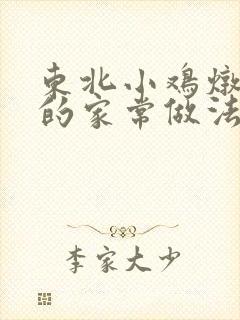 東北小鸡燉
的家常做法
李家大少